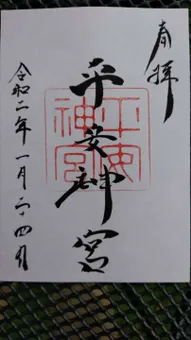 奉拝
平安神宮
平安
神宮
令和二年一月二十四日